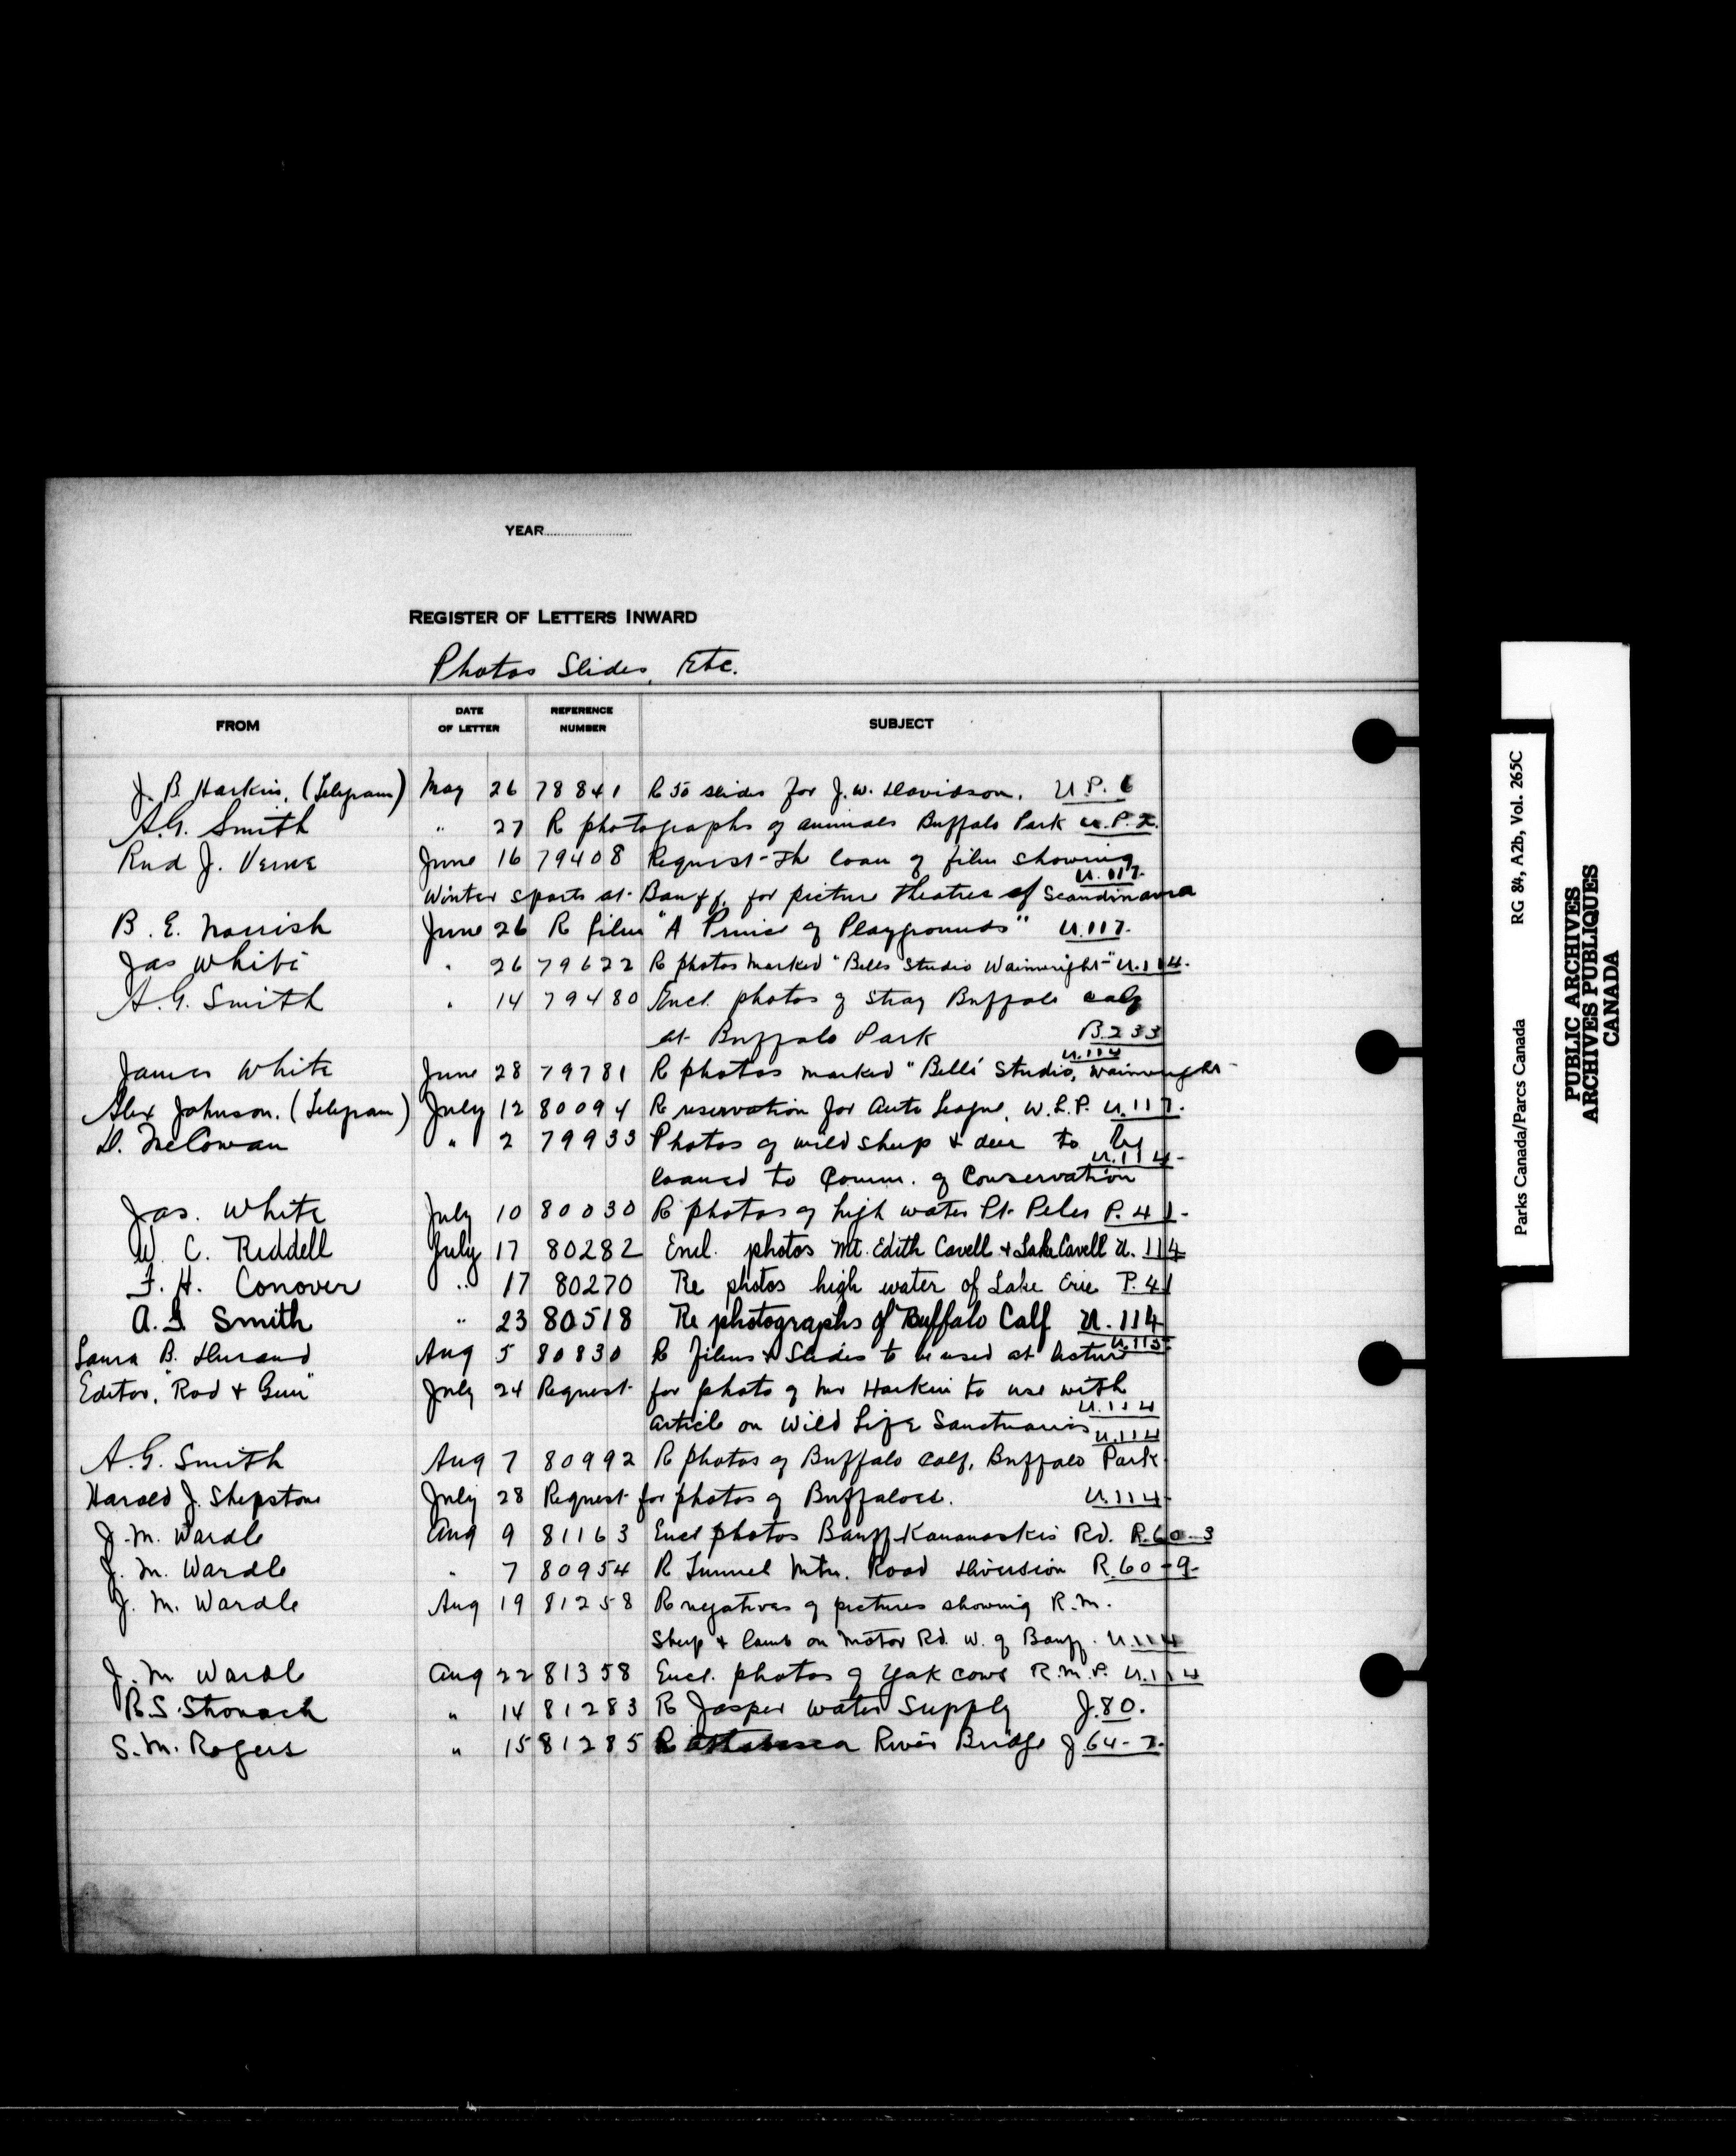 YEAR
REGISTER OF LETTERS INWARD
Photos Slides, Etc.
FROM DATE OF LETTER REFERENCE NUMBER SUBJECT
J. B. Harkin, (Telegram) May 26 78841 R 50 slides for J.W. Davidson. U.P. 6
A.G. Smith " 27 R photographs of animals Buffalo Park U.P.2.
Rud J. Verne June 16 79408 Request the loan of film showing
U.117.
Winter sports at Banff, for picture theatres of Scandinavia
B. E. Norrish June 26 R film "A Prince of Playgrounds" U.117.
Jas White " 26 79622 R photos marked "Bells Studio Wainwright" U.114.
A.G. Smith " 14 79480 Encl. photos of stray Buffalo calf
at Buffalo Park B.233
U.114
James White June 28 79781 R photos marked "Bells' Studio, Wainwright
Alex Johnson. (Telegram) July 12 80094 R reservation for Auto League, W.L.P. U.117.
D. McCowan " 2 79933 Photos of wild sheep & deer to be
U.114-
loaned to Comm. of Conservation
Jas. White July 10 80030 R photos of high water Pt. Pelee P.41-
W. C. Riddell July 17 80282 Encl. photos Mt. Edith Cavell & Lake Cavell U.114
F. H. Conover " 17 80270 Re photos high water of Lake Erie P.41
A. G Smith " 23 80518 Re photographs of Buffalo Calf U.114
U.115
Laura B. Durand Aug 5 80830 R films & Slides to be used at lecture
Editor, "Rod & Gun" July 24 Request for photo of Mr Harkin to use with
U.114
article on Wild Life Sanctuaries
U.114
A.G. Smith Aug 7 80992 R photos of Buffalo calf, Buffalo Park
Harold J. Shepstone July 28 Request for photos of Buffaloes. U.114
J.M. Wardle Aug 9 81163 Encl photos Banff-Kananaskis Rd. R.60-3
J. M. Wardle " 7 80954 R Tunnel Mtn. Road Diversion R.60-9-
J. M. Wardle Aug 19 81258 R negatives of pictures showing R.M.
Sheep & lamb on Motor Rd. W. of Banff. U.114
J. M Wardl Aug 22 81358 Encl. photos of Yak cows R.M.P. U.114
R.S. Stronach " 14 81283 R Jasper Water Supply J.80.
S.M. Rogers " 15 81285 R Athabasca River Bridge J 64-2-
Parks Canada/Parcs Canada RG 84, A2b, Vol. 265C
PUBLIC ARCHIVES
ARCHIVES PUBLIQUES
CANADA